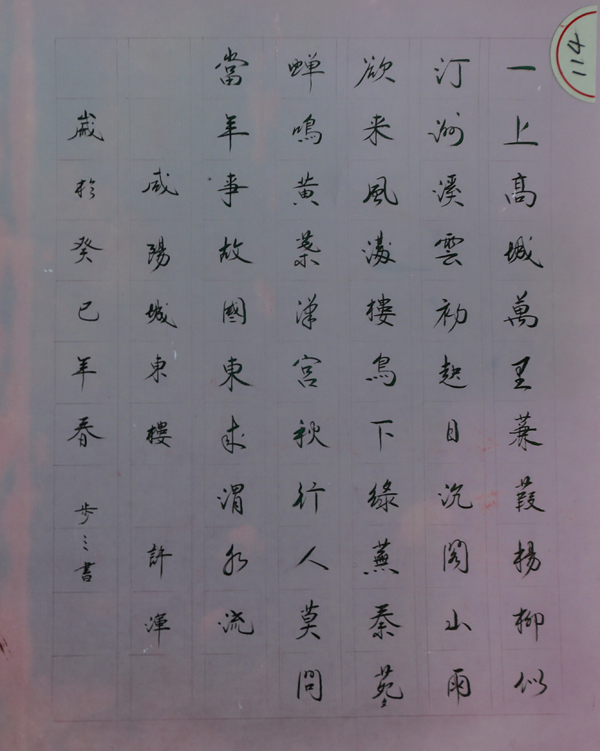 114
一上高城萬里蒹葭揚柳似
汀洲溪雲初起日沉閣山雨
欲来風滿樓鳥下綠蕪秦苑
蟬鳴黃葉漢宮秋行人莫問
當年事故國東來渭水流
咸陽城東樓 許渾
歲於癸巳年春 步書